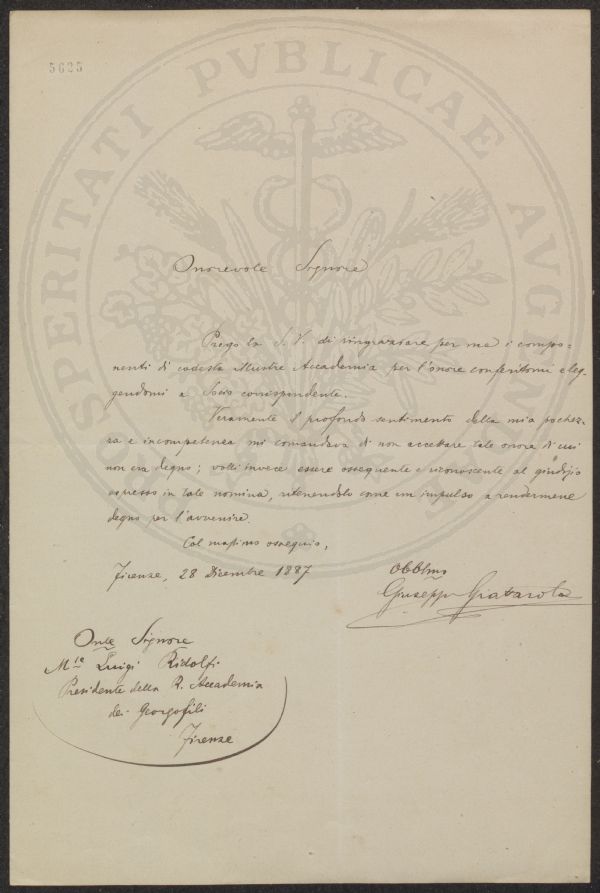 5625
PROSPERITATI PVBLICAE AVGENDAE
Onorevole Signore
Prego la S. V. di ringraziare per me i compo-
nenti di codesta Illustre Accademia per l'onore conferitomi eleg-
gendomi a Socio corrispondente.
Veramente il profondo sentimento della mia pochez-
za e incompetenza mi comandava di non accettare tale onore di cui
non era degno; volli invece essere ossequente e riconoscente al giudizio
espresso in tale nomina, ritenendolo come un impulso a rendermene
degno per l'avvenire.
Col massimo ossequio,
Firenze, 28 Dicembre 1887
Obblmo
Giuseppe Grattarola
Onle Signore
Mse Luigi Ridolfi
Presidente della R. Accademia
dei Georgofili
Firenze